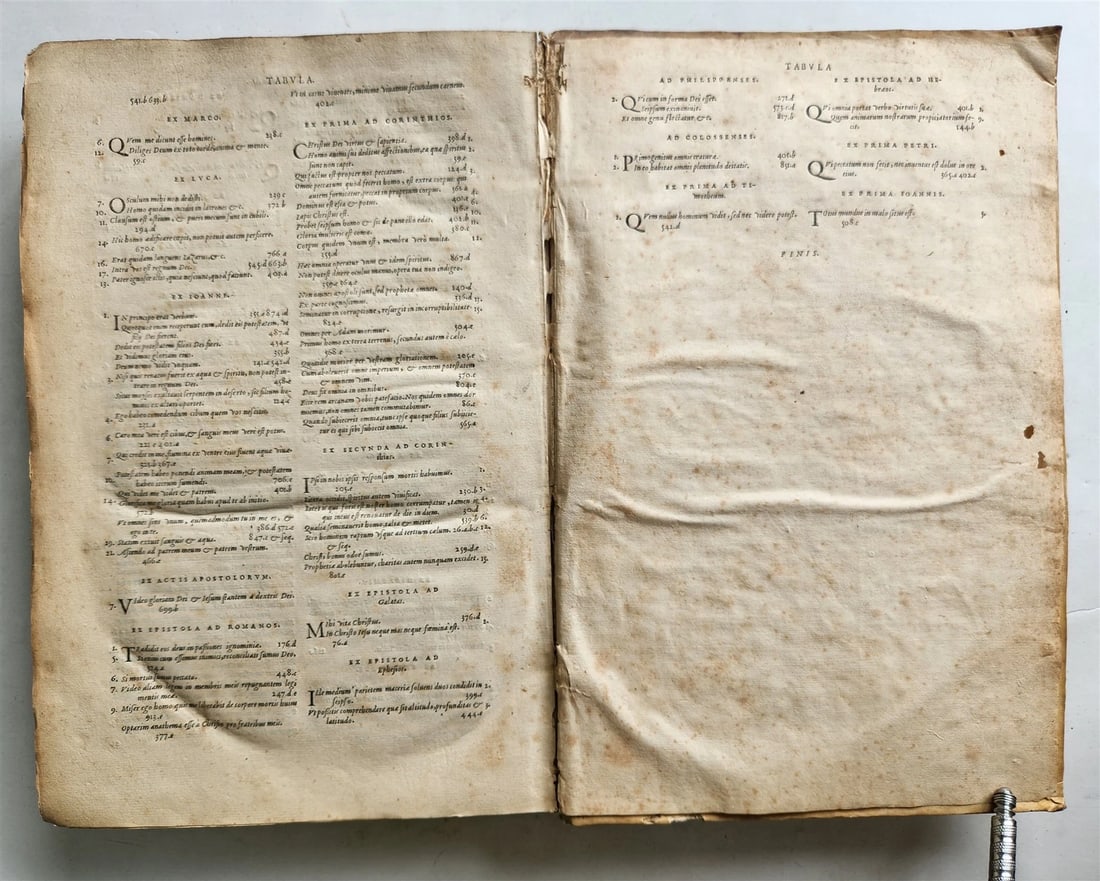 TABVLA.
541.b 633.b
EX MARCO.
6. QVem me dicunt esse homines. 238.c
12. Diliges Deum ex toto corde, anima & mente.
59.c
EX LVCA.
7. OSculum mihi non dedisti. 239.c
10. Homo quidam incidit in latrones &c. 372.b
11. Clausum est ostium, & pueri mecum sunt in cubili.
294.d
14. Hic homo ædificare cœpit, non potuit autem perficere.
670.c
16. Erat quidam languens Lazarus, &c. 766.a
17. Intra vos est regnum Dei. 345.d 663.b
13. Pater ignosce illis, quia nesciunt, quod faciunt. 409.a
EX IOANNE.
1. IN principio erat verbum. 355.e 874.d
Quotquot eum receperunt eum, dedit eis potestatem, vt
filij Dei fierent. 487.d
Dedit eis potestatem filios Dei fieri. 434.e
Et vidimus gloriam eius. 355.b
Deum nemo vidit vnquam. 141.c 541.d
3. Nisi quis renatus fuerit ex aqua & spiritu, non potest in-
trare in regnum Dei. 458.e
Sicut moyses exaltauit serpentem in deserto, sic filium ho-
minis exaltari oportet. 224.c
4. Ego habeo comedendum cibum quem vos nescitis.
251.a
6. Caro mea verè est cibus, & sanguis meus verè est potus.
222.e 402.a
7. Qui credit in me, flumina ex ventre eius fluent aquæ viuæ.
323.b 367.a
Potestatem habeo ponendi animam meam, & potestatem
habeo iterum sumendi. 706.e
Qui videt me videt & patrem. 401.b
gloria quam habui apud te ab initio.
372.b
Vt omnes sint vnum, quemadmodum tu in me es, &
ego in te. 386.d 572.a
19. Statim exiuit sanguis & aqua. 847.e & seq.
21. Ascendo ad patrem meum & patrem vestrum.
466.a
EX ACTIS APOSTOLORVM.
7. VIdeo gloriam Dei & Iesum stantem à dextris Dei.
699.b
EX EPISTOLA AD ROMANOS.
1. TRadidit eos deus in passiones ignominiæ. 176.d
5. Iterum cum essemus inimici, reconciliati sumus Deo.
524.a
6. Si mortui sumus peccato. 448.e
7. Video aliam legem in membris meis repugnantem legi
mentis meæ. 247.d.e
9. Miser ego homo, quis me liberabit de corpore mortis huius
913.e
Optarim anathema esse à Christo pro fratribus meis.
377.a
Vt in carne viuentes, minime viuamus secundum carnem.
402.a
EX PRIMA AD CORINTHIOS.
CHristus Dei virtus & sapientia. 398.d 1.
Homo animi sui deditus affectionibus, ea quæ spiritus 2.
sunt non capit. 59.e
Qui factus est propter nos peccatum. 124.d
Omne peccatum quod fecerit homo, est extra corpus, qui
autem fornicatur, peccat in proprium corpus. 362.a
Dominus est esca & potus. 402.a
Lapis Christus est. 10.
Probet seipsum homo & sic de pane illo edat. 402.b 11.
Gloria mulieris est coma. 380.c
Corpus quidem vnum est, membra verò multa. 12.
355.d
Hæc omnia operatur vnus & idem spiritus. 867.d
Non potest dicere oculus manui, opera tua non indigeo.
359.e 364.c
Non omnes apostoli sunt, sed prophetæ omnes. 240.d
Ex parte cognoscimus. 316.d 13.
Seminatur in corruptione, resurgit in incorruptibilitate. 15.
824.e
Omnes per Adam morimur. 504.e
Primus homo ex terra terrenus, secundus autem è cælo.
568.c
Quotidie morior per vestram gloriationem. 205.e
Cum aboleuerit omne imperium, & omnem potestatem
& omnem vim. 370.e
Deus sit omnia in omnibus. 804.e
Ecce rem arcanam vobis patefacio. Nos quidem omnes dor
miemus, non omnes tamen commutabimur. 86.e
Quando subiecerit omnia, tunc ipse quoque filius subijcie-
tur ei qui sibi subiecit omnia. 565.c
EX SECVNDA AD CORIN-
thios.
IPsi in nobis ipsis responsum mortis habuimus. 1.
205.e
Litera occidit, spiritus autem viuificat. 230.b 3.
Tametsi is qui foris est noster homo corrumpatur, tamen is 4.
qui intus est renouatur de die in diem. 30.d
Qualia seminauerit homo, talia & metet. 519.b 6.
Scio hominem raptum vsque ad tertium cælum. 26.a.b.c 12.
& seq.
Christi bonus odor sumus. 259.d.e
Prophetiæ abolebuntur, charitas autem nunquam excidet. 13.
801.e
EX EPISTOLA AD
Galatas.
MIhi vita Christus. 376.d
In Christo Iesu neque mas neque fœmina est. 2.
76.a
EX EPISTOLA AD
Ephesios.
ILle medium parietem maceriæ soluens duos condidit in 2.
seipso. 399.e
Vt possitis comprehendere quæ sit altitudo, profunditas & 3.
latitudo. 444.e
TABVLA
AD PHILIPPENSES.
2. QVi cum in forma Dei esset. 271.d
Seipsum exinaniuit. 575.c.d
Et omne genu flectatur, &c. 807.b
AD COLOSSENSES.
1. PRimogenitus omnis creaturæ. 406.b
2. In eo habitat omnis plenitudo deitatis. 851.a
EX PRIMA AD TI-
motheum.
1. QVem nullus hominum vidit, sed nec videre potest.
541.d
EX EPISTOLA AD HE-
bræos.
QVi omnia portat verbo virtutis suæ. 401.b 1.
Quem animarum nostrarum propitiatorium fe- 9.
cit. 144.b
EX PRIMA PETRI.
QVi peccatum non fecit, nec inuentus est dolus in ore 2.
eius. 365.c 402.c
EX PRIMA IOANNIS.
TOtus mundus in malo situs est. 5.
508.c
FINIS.